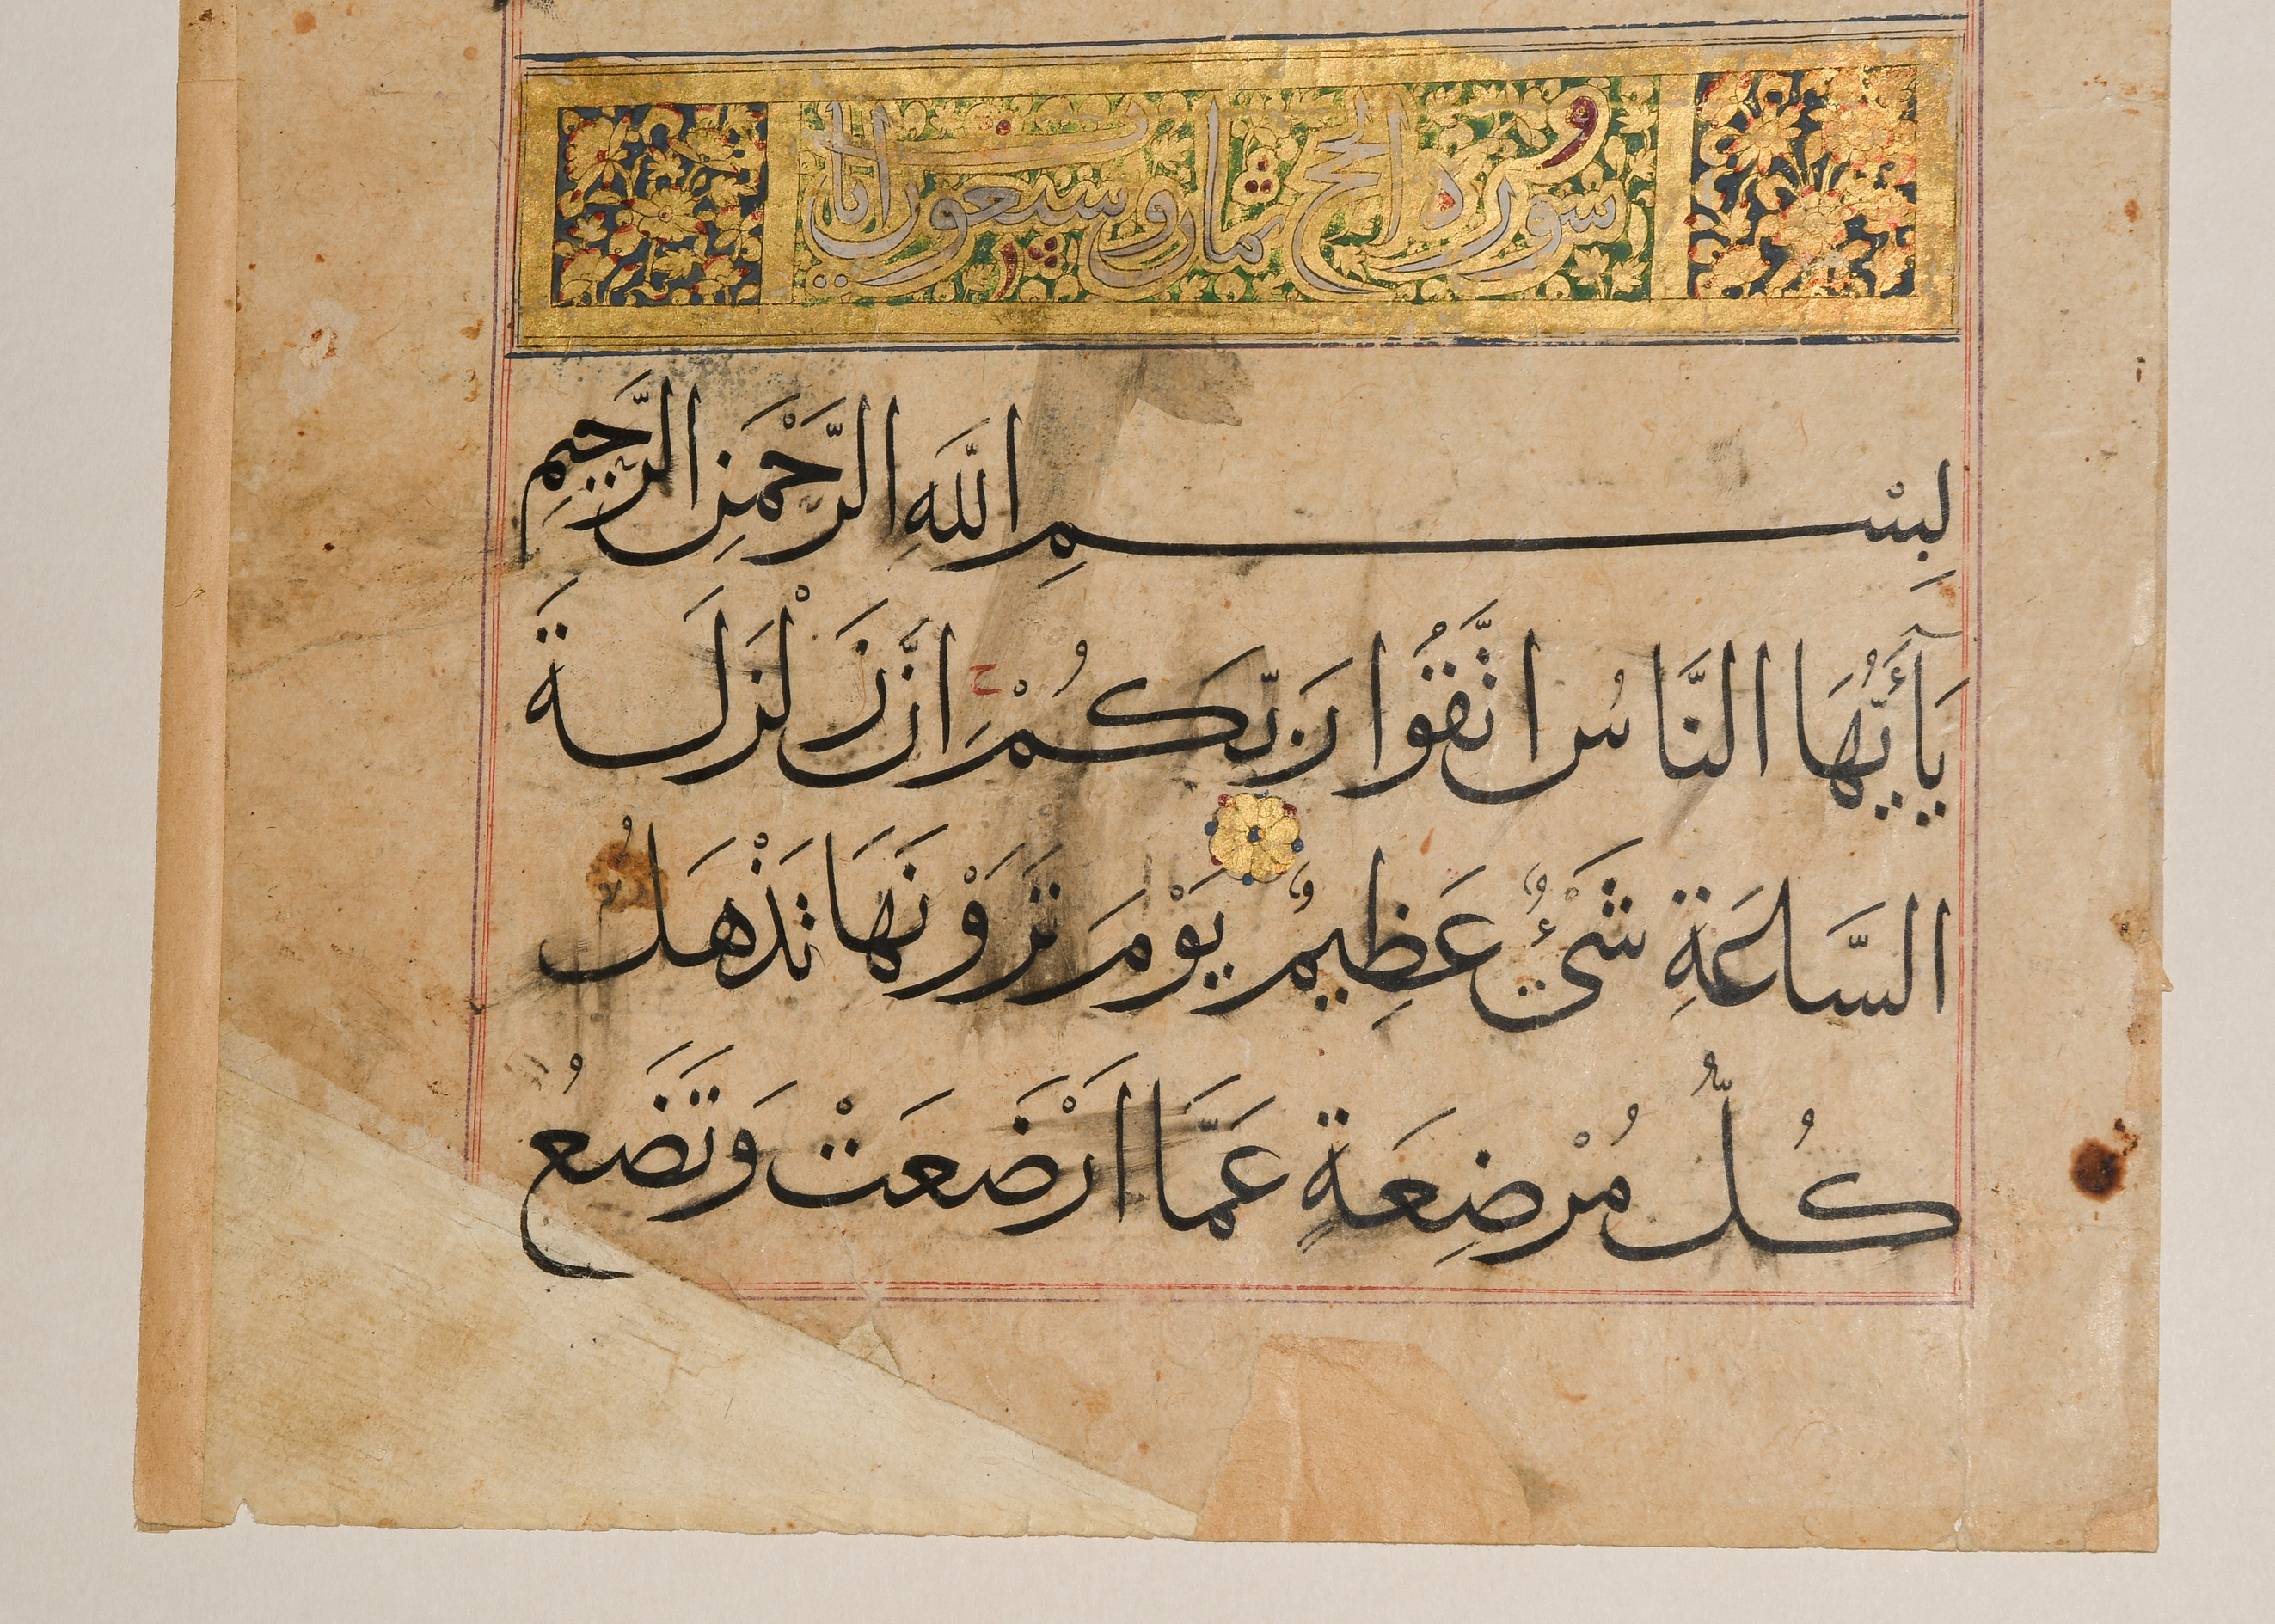 سورة الحج ثمان وسبعون اٰيات
بِسْمِ اللَّهِ الرَّحْمَنِ الرَّحِيمِ
يَآأَيُّهَا النَّاسُ اتَّقُوا رَبَّكُمْ ج اِنَّ زَلْزَلَةَ
السَّاعَةِ شَيْءٌ عَظِيمٌ يَوْمَ تَرَوْنَهَا تَذْهَلُ
كُلُّ مُرْضِعَةٍ عَمَّا اَرْضَعَتْ وَتَضَعُ